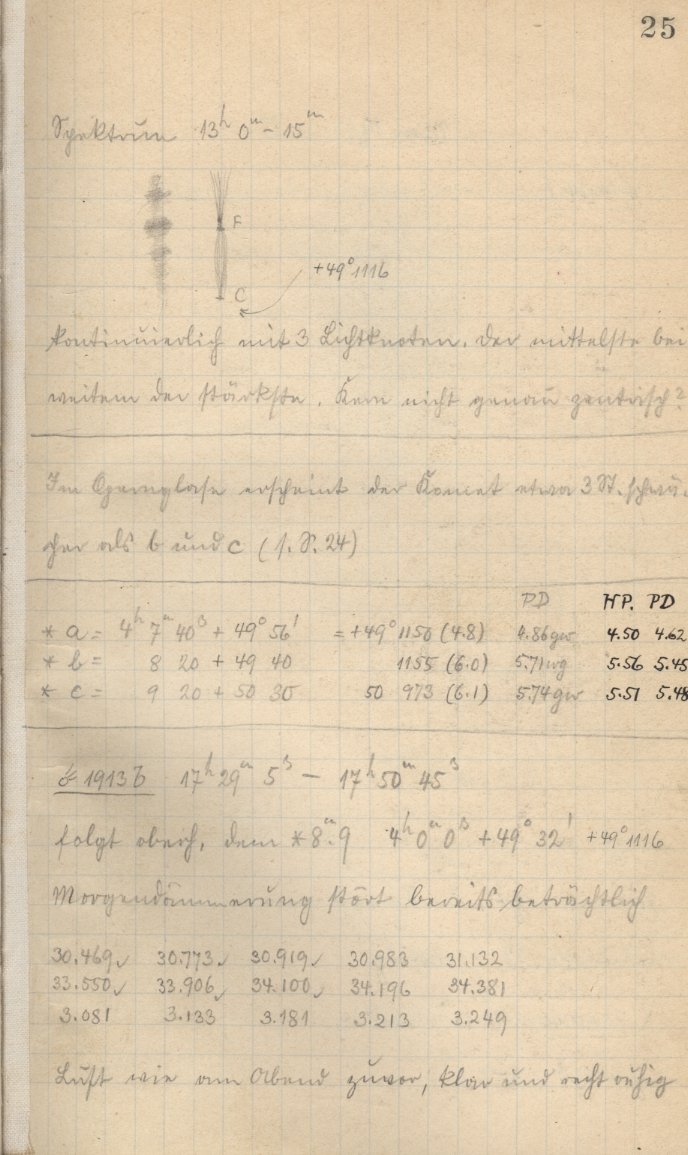 25
Spektrum 13ʰ 0ᵐ - 15ᵐ
F
C
+49° 1116
kontinuierlich mit 3 Lichtknoten. Der mittelste bei
weitem der stärkste. Kern nicht genau zentrisch?
Im Opernglase erscheint der Komet etwa 3 St. schwä-
cher als b und c (s. S. 24)
PD HP. PD
* a = 4ʰ 7ᵐ 40ˢ + 49° 56' = +49° 1150 (4.8) 4.86gw 4.50 4.62
* b = 8 20 + 49 40 1155 (6.0) 5.71wg 5.56 5.45
* c = 9 20 + 50 30 50 973 (6.1) 5.74gw 5.51 5.48
1913 b 17ʰ 29ᵐ 5ˢ - 17ʰ 50ᵐ 45ˢ
folgt dem *8ᵐ.9 4ʰ 0ᵐ 0ˢ +49° 32' +49° 1116
Morgendämmerung stört bereits beträchtlich
30.469 30.773 30.919 30.983 31.132
33.550 33.906 34.100 34.196 34.381
3.081 3.133 3.181 3.213 3.249
Luft wie am Abend zuvor, klar und recht ruhig